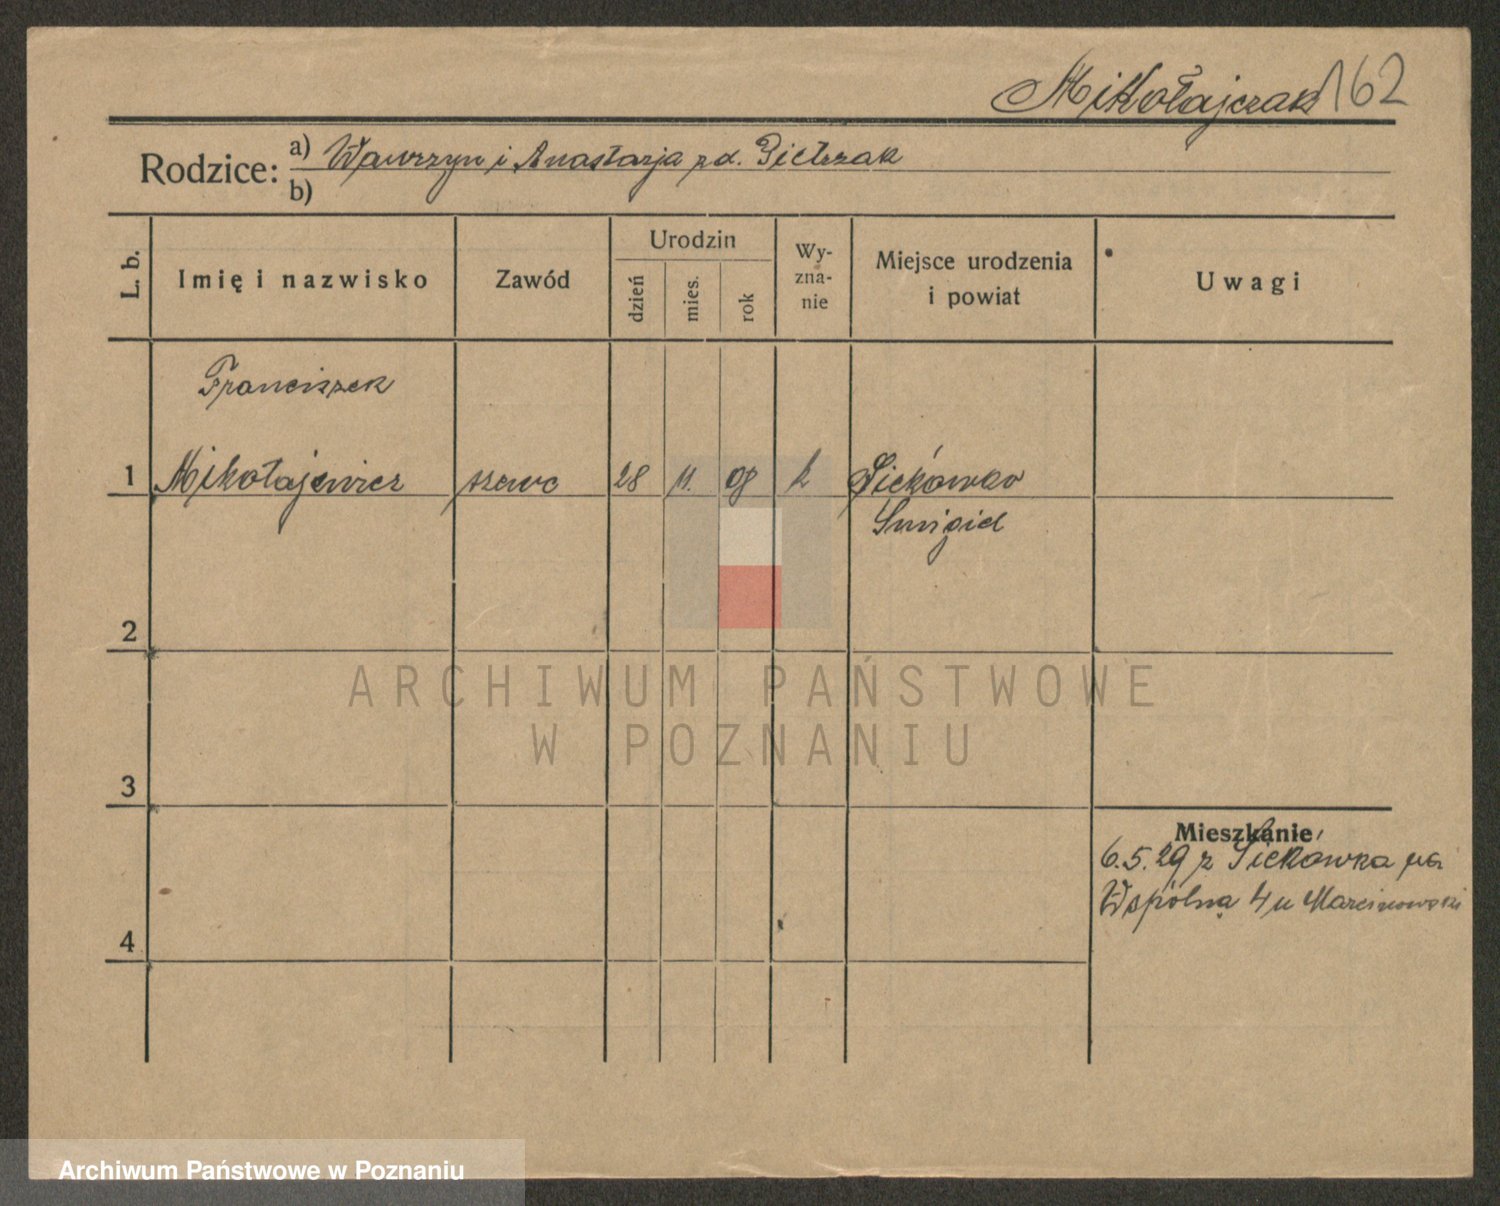 Mikołajczak 162
Rodzice: a) Wawrzyn i Anastazja zd. Pietrzak
b)
L. b.
Imię i nazwisko
Zawód
Urodzin
dzień
mies.
rok
Wy-
zna-
nie
Miejsce urodzenia
i powiat
Uwagi
Franciszek
1 Mikołajewicz szewc 28 11. 08 k Siekówko
Śmigiel
2
3
4
Mieszkanie
6.5.29 z Siekówka na
Wspólna 4 u Marcinowski
ARCHIWUM PAŃSTWOWE
W POZNANIU
Archiwum Państwowe w Poznaniu